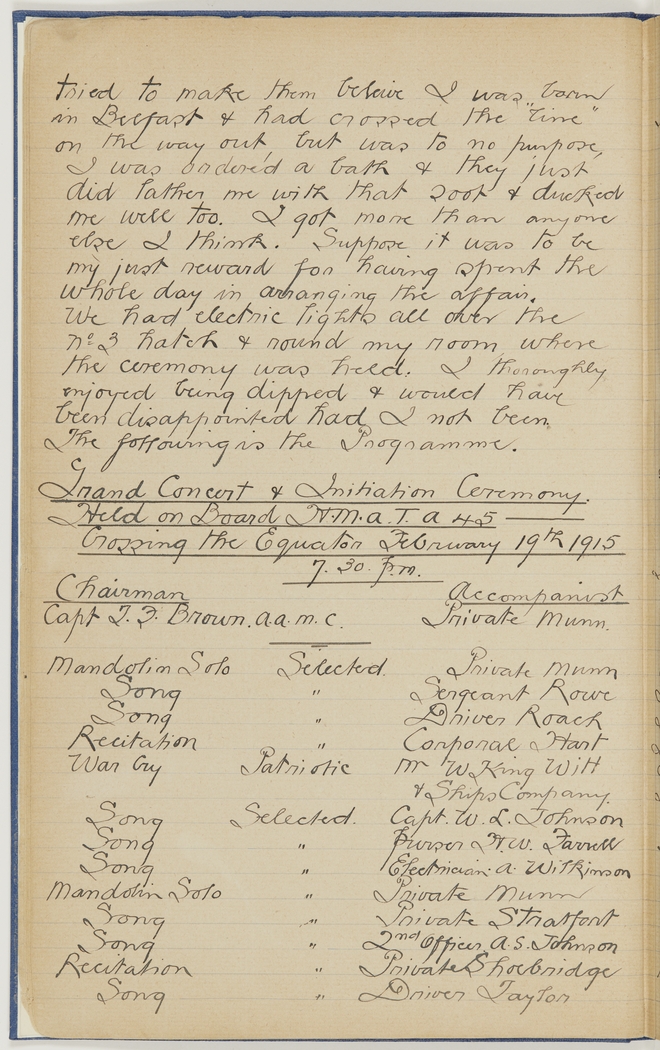 tried to make them beleive I was born
in Belfast & had crossed the "Line"
on the way out, but was to no purpose,
I was ordered a bath & they just
did lather me with that soot & ducked
me well too. I got more than anyone
else I think. Suppose it was to be
my just reward for having spent the
whole day in arranging the affair.
We had electric lights all over the
No 3 hatch & round my room where
the ceremony was held. I thoroughly
enjoyed being dipped & would have
been disappointed had I not been.
The following is the Programme.
Grand Concert & Initiation Ceremony.
Held on Board H.M.A.T. A 45
Crossing the Equator February 19th 1915
7.30. p.m.
Chairman Accompanist
Capt Brown. a.a.m.c. Private Munn.
Mandolin Solo Selected. Private Munn
Song " Sergeant Rowe
Song " Driver Roach
Recitation " Corporal Hart
War Cry Patriotic Mr W King Witt
& Ships Company.
Song Selected. Capt. W. L. Johnson
Song " Purser H.W. Farrell
Song " Electrician. A. Wilkinson
Mandolin Solo " Private Munn
Song " Private Stratfort
Song " 2nd Officer. A.S. Johnson
Recitation " Private Shoebridge
Song " Driver Taylor